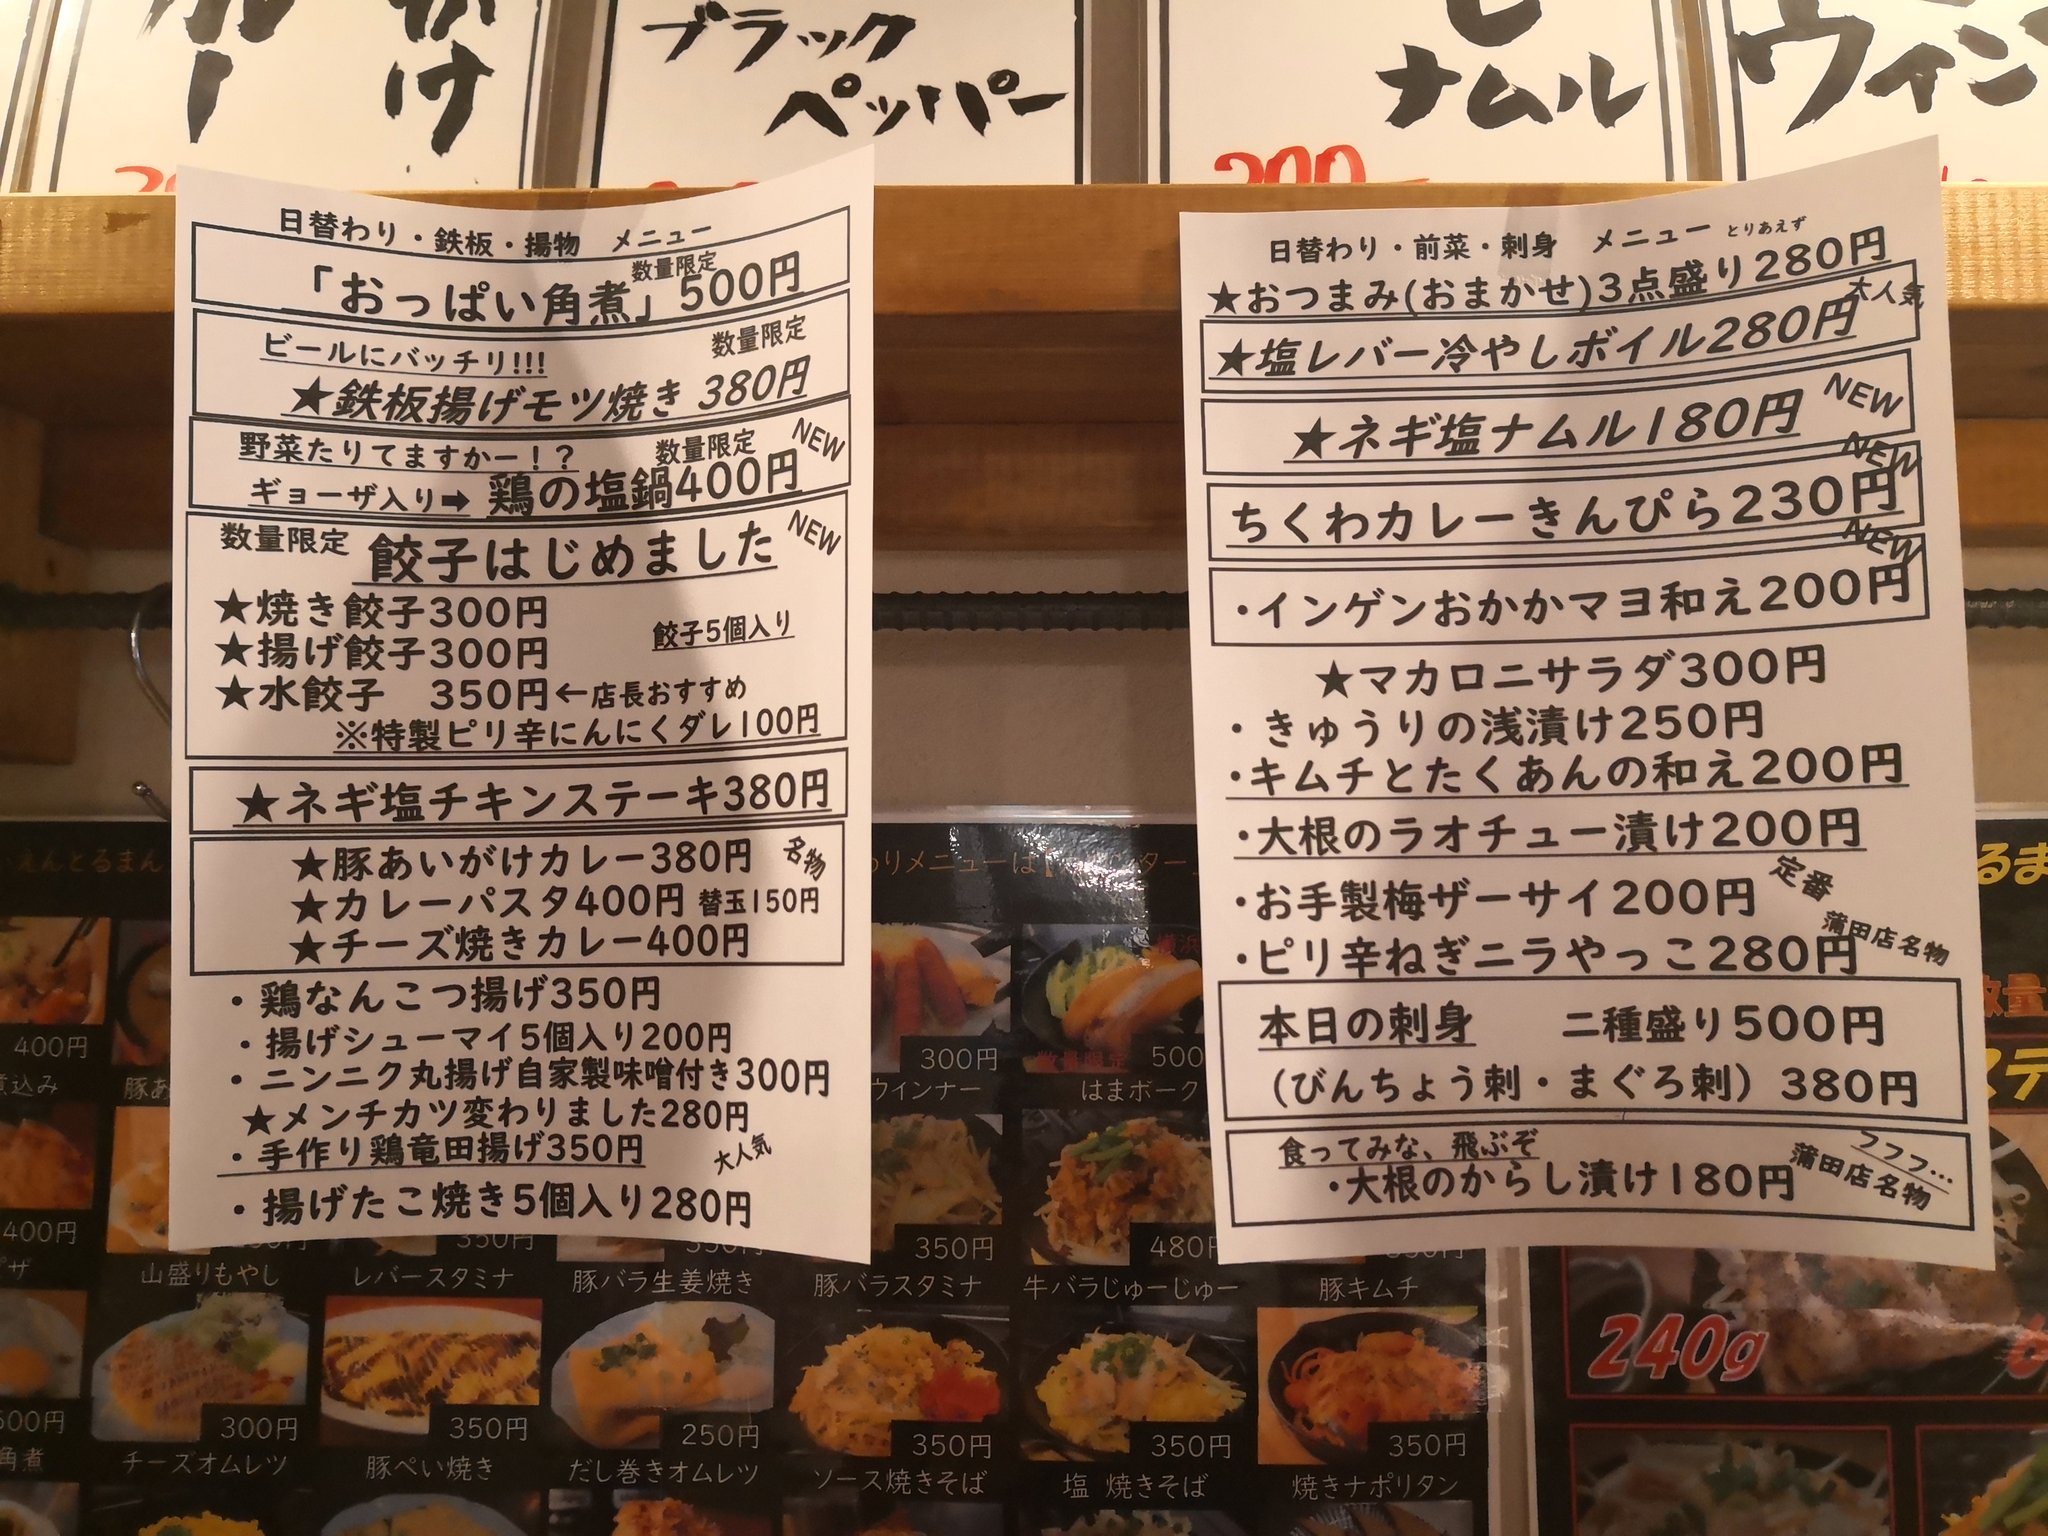 ブラック
ペッパー
ナムル
ウイン
200
日替わり・鉄板・揚物　メニュー
数量限定
「おっぱい角煮」500円
ビールにバッチリ!!!
数量限定
★鉄板揚げモツ焼き 380円
野菜たりてますかー！？
数量限定
NEW
ギョーザ入り➡ 鶏の塩鍋400円
数量限定 餃子はじめました
NEW
★焼き餃子300円
★揚げ餃子300円
餃子5個入り
★水餃子　350円←店長おすすめ
※特製ピリ辛にんにくダレ100円
★ネギ塩チキンステーキ380円
★豚あいがけカレー380円
名物
★カレーパスタ400円 替玉150円
★チーズ焼きカレー400円
・鶏なんこつ揚げ350円
・揚げシューマイ5個入り200円
・ニンニク丸揚げ自家製味噌付き300円
★メンチカツ変わりました280円
・手作り鶏竜田揚げ350円
大人気
・揚げたこ焼き5個入り280円
日替わり・前菜・刺身　メニュー とりあえず
★おつまみ(おまかせ)3点盛り280円
大人気
★塩レバー冷やしボイル280円
NEW
★ネギ塩ナムル180円
NEW
ちくわカレーきんぴら230円
NEW
・インゲンおかかマヨ和え200円
★マカロニサラダ300円
・きゅうりの浅漬け250円
・キムチとたくあんの和え200円
・大根のラオチュー漬け200円
定番
・お手製梅ザーサイ200円
蒲田店名物
・ピリ辛ねぎニラやっこ280円
本日の刺身　二種盛り500円
（びんちょう刺・まぐろ刺）380円
食ってみな、飛ぶぞ
フフフ…
・大根のからし漬け180円
蒲田店名物
えんとるまん
わりメニューは
るま
数量
ステ
400円
300円
ウインナー
数量限定 500
はまボーク
400円
ピザ
山盛りもやし
350円
レバースタミナ
豚バラ生姜焼き
350円
豚バラスタミナ
480円
牛バラじゅーじゅー
豚キムチ
240g
角煮
300円
チーズオムレツ
350円
豚ぺい焼き
250円
だし巻きオムレツ
350円
ソース焼きそば
350円
塩 焼きそば
350円
焼きナポリタン